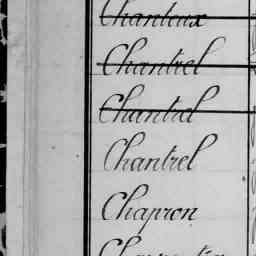 Chanteux
Chantrel
Chantrel
Chantrel
Chapron
Charpentier